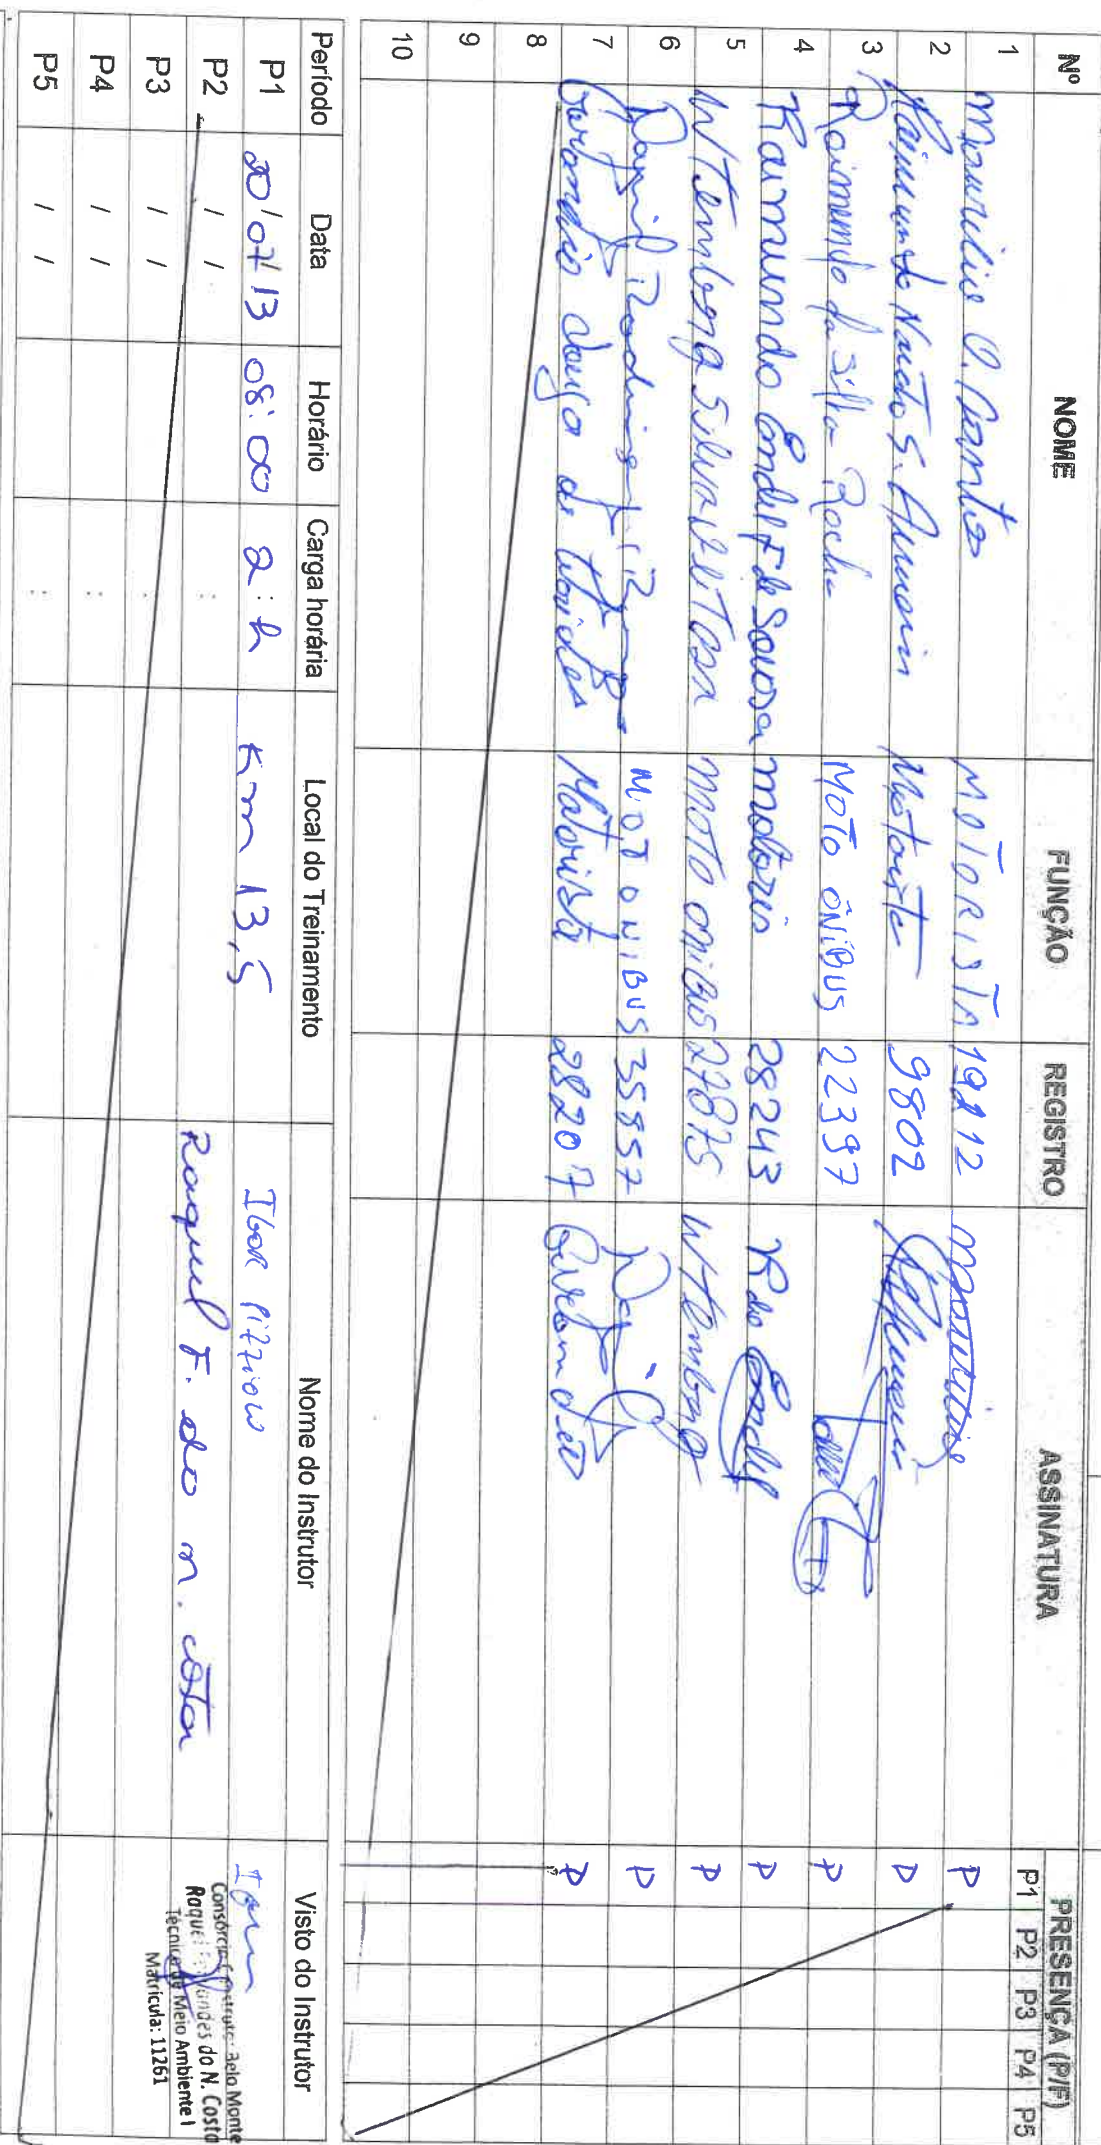 Nº NOME FUNÇÃO REGISTRO ASSINATURA PRESENÇA (P/F)
P1 P2 P3 P4 P5
1 Maurilio O. Santos MOTORISTA 19212 Maurilio P
2 Raimundo Nonato S. Amorim Motorista 9802 P
3 Raimundo da Silva Rocha MOTO ÔNIBUS 22397 P
4 Raimundo Endel F de Sousa motoris 28243 Rdo Endel P
5 WTemberg Silva Feitosa MOTO ONIBUS 27875 WTemberg P
6 MOT ONIBUS 35857 P
7 de Motorista 28207 P
8
9
10
Período Data Horário Carga horária Local do Treinamento Nome do Instrutor Visto do Instrutor
P1 20/07/13 08:00 2:h Km 13,5 Igor Pizziolo Igor
P2 / / : Raquel F. do N. Costa
Consórcio Construtor Belo Monte
Raquel Fernandes do N. Costa
Técnico de Meio Ambiente I
Matrícula: 11261
P3 / / :
P4 / / :
P5 / / :